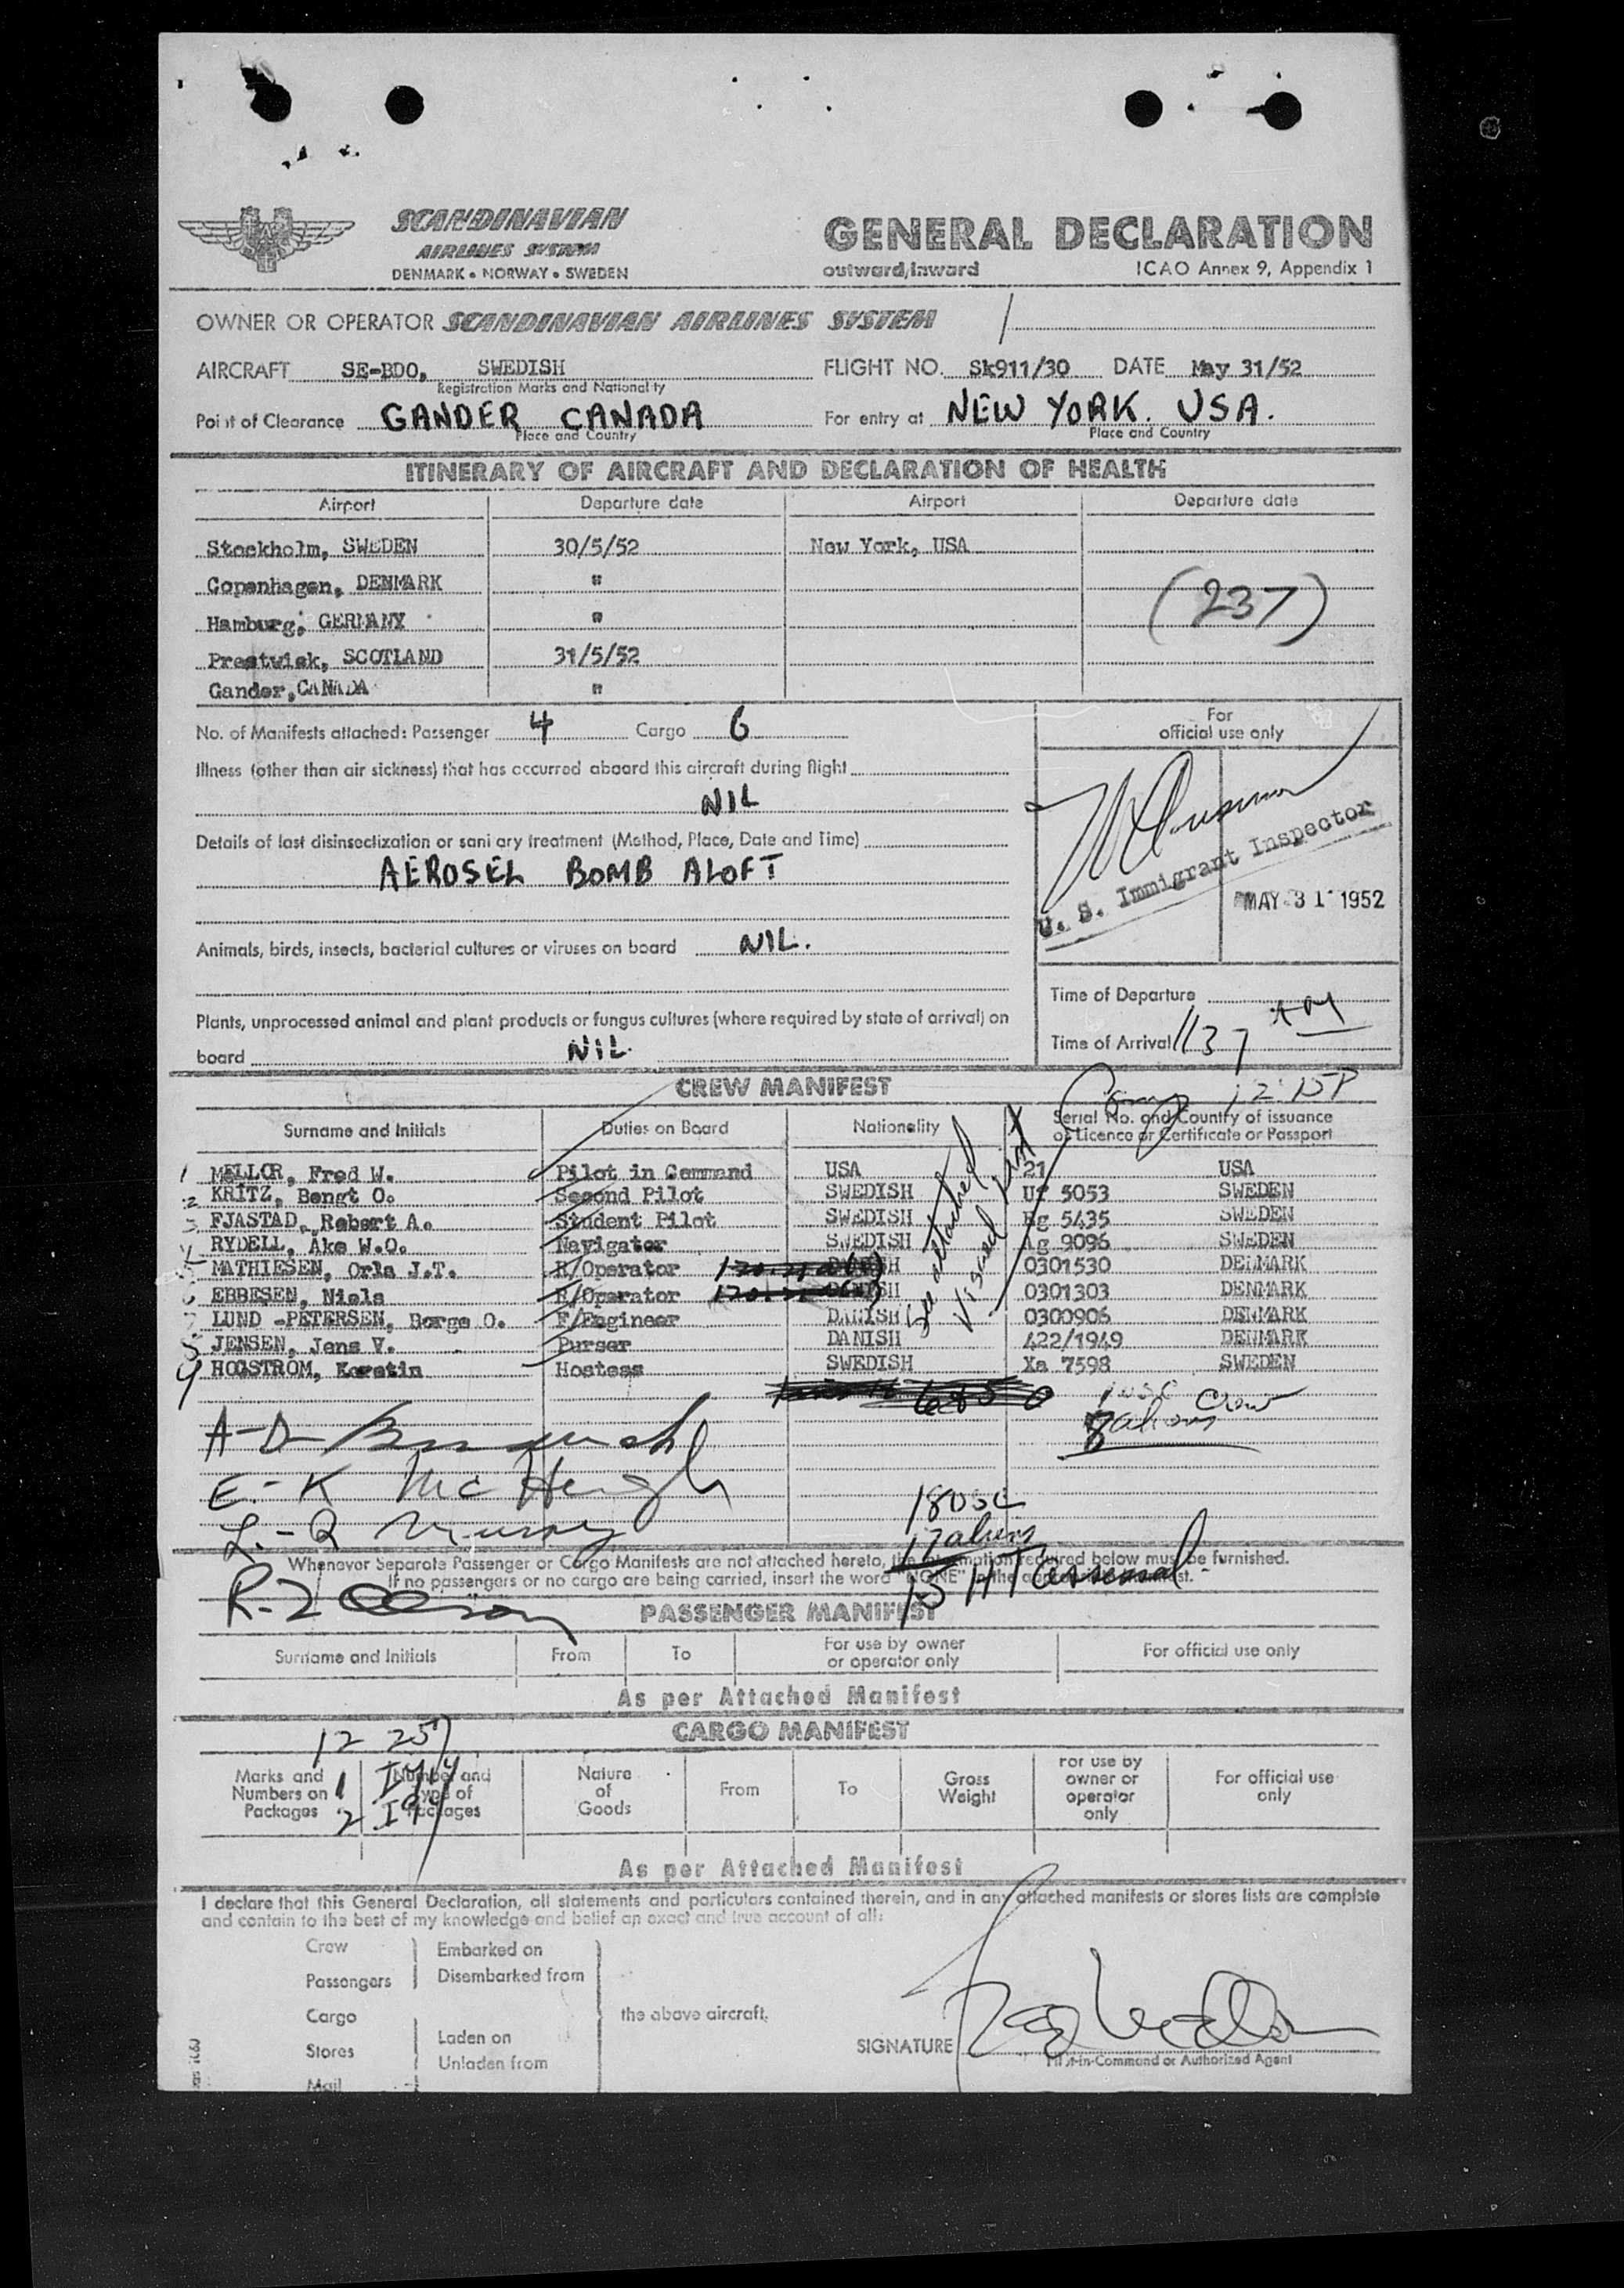 SCANDINAVIAN
AIRLINES SYSTEM
DENMARK • NORWAY • SWEDEN
GENERAL DECLARATION
outward/inward
ICAO Annex 9, Appendix 1
OWNER OR OPERATOR SCANDINAVIAN AIRLINES SYSTEM
AIRCRAFT SE-BDO, SWEDISH FLIGHT NO. Sk911/30 DATE May 31/52
Registration Marks and Nationality
Point of Clearance GANDER CANADA For entry at NEW YORK. USA.
Place and Country Place and Country
ITINERARY OF AIRCRAFT AND DECLARATION OF HEALTH
Airport Departure date Airport Departure date
Stockholm, SWEDEN 30/5/52 New York, USA
Copenhagen, DENMARK "
Hamburg, GERMANY "
(237)
Prestwisk, SCOTLAND 31/5/52
Gander, CANADA "
No. of Manifests attached: Passenger 4 Cargo 6
For
official use only
Illness (other than air sickness) that has occurred aboard this aircraft during flight
NIL
Details of last disinsectization or sani ary treatment (Method, Place, Date and Time)
AEROSEL BOMB ALOFT
U. S. Immigrant Inspector
MAY 31 1952
Animals, birds, insects, bacterial cultures or viruses on board NIL.
Time of Departure
Plants, unprocessed animal and plant products or fungus cultures (where required by state of arrival) on
board NIL.
Time of Arrival 1137 AM
12:15P
CREW MANIFEST
Surname and Initials Duties on Board Nationality Serial No. and Country of issuance
of Licence or Certificate or Passport
1 MELLOR, Fred W. Pilot in Command USA 21 USA
2 KRITZ, Bengt O. Second Pilot SWEDISH Uf 5053 SWEDEN
3 FJASTAD, Robert A. Student Pilot SWEDISH Hg 5435 SWEDEN
4 RYDELL, Åke W.O. Navigator SWEDISH Ag 9096 SWEDEN
MATHIESEN, Orla J.T. R/Operator DANISH 0301530 DENMARK
EBBESEN, Niels R/Operator DANISH 0301303 DENMARK
LUND -PETERSEN, Borge O. F/Engineer DANISH 0300906 DENMARK
JENSEN, Jens V. Purser DANISH 422/1949 DENMARK
9 HOGSTROM, Kerstin Hostess SWEDISH Xa 7598 SWEDEN
See attached
Visaed list
1 USC Crew
8 aliens
A-D
E-K McHeugh
L-Q Murray
R-Z
18 USC
17 aliens
Whenever Separate Passenger or Cargo Manifests are not attached hereto, the information required below must be furnished.
If no passengers or no cargo are being carried, insert the word "NONE" in the appropriate manifest.
PASSENGER MANIFEST
Surname and Initials From To For use by owner
or operator only For official use only
As per Attached Manifest
CARGO MANIFEST
12 25
Marks and
Numbers on
Packages
Number and
type of
Packages
Nature
of
Goods
From
To
Gross
Weight
For use by
owner or
operator
only
For official use
only
As per Attached Manifest
I declare that this General Declaration, all statements and particulars contained therein, and in any attached manifests or stores lists are complete
and contain to the best of my knowledge and belief an exact and true account of all:
Crew
Passengers
Embarked on
Disembarked from
Cargo
Stores
Mail
Laden on
Unladen from
the above aircraft.
SIGNATURE
Pilot-in-Command or Authorized Agent